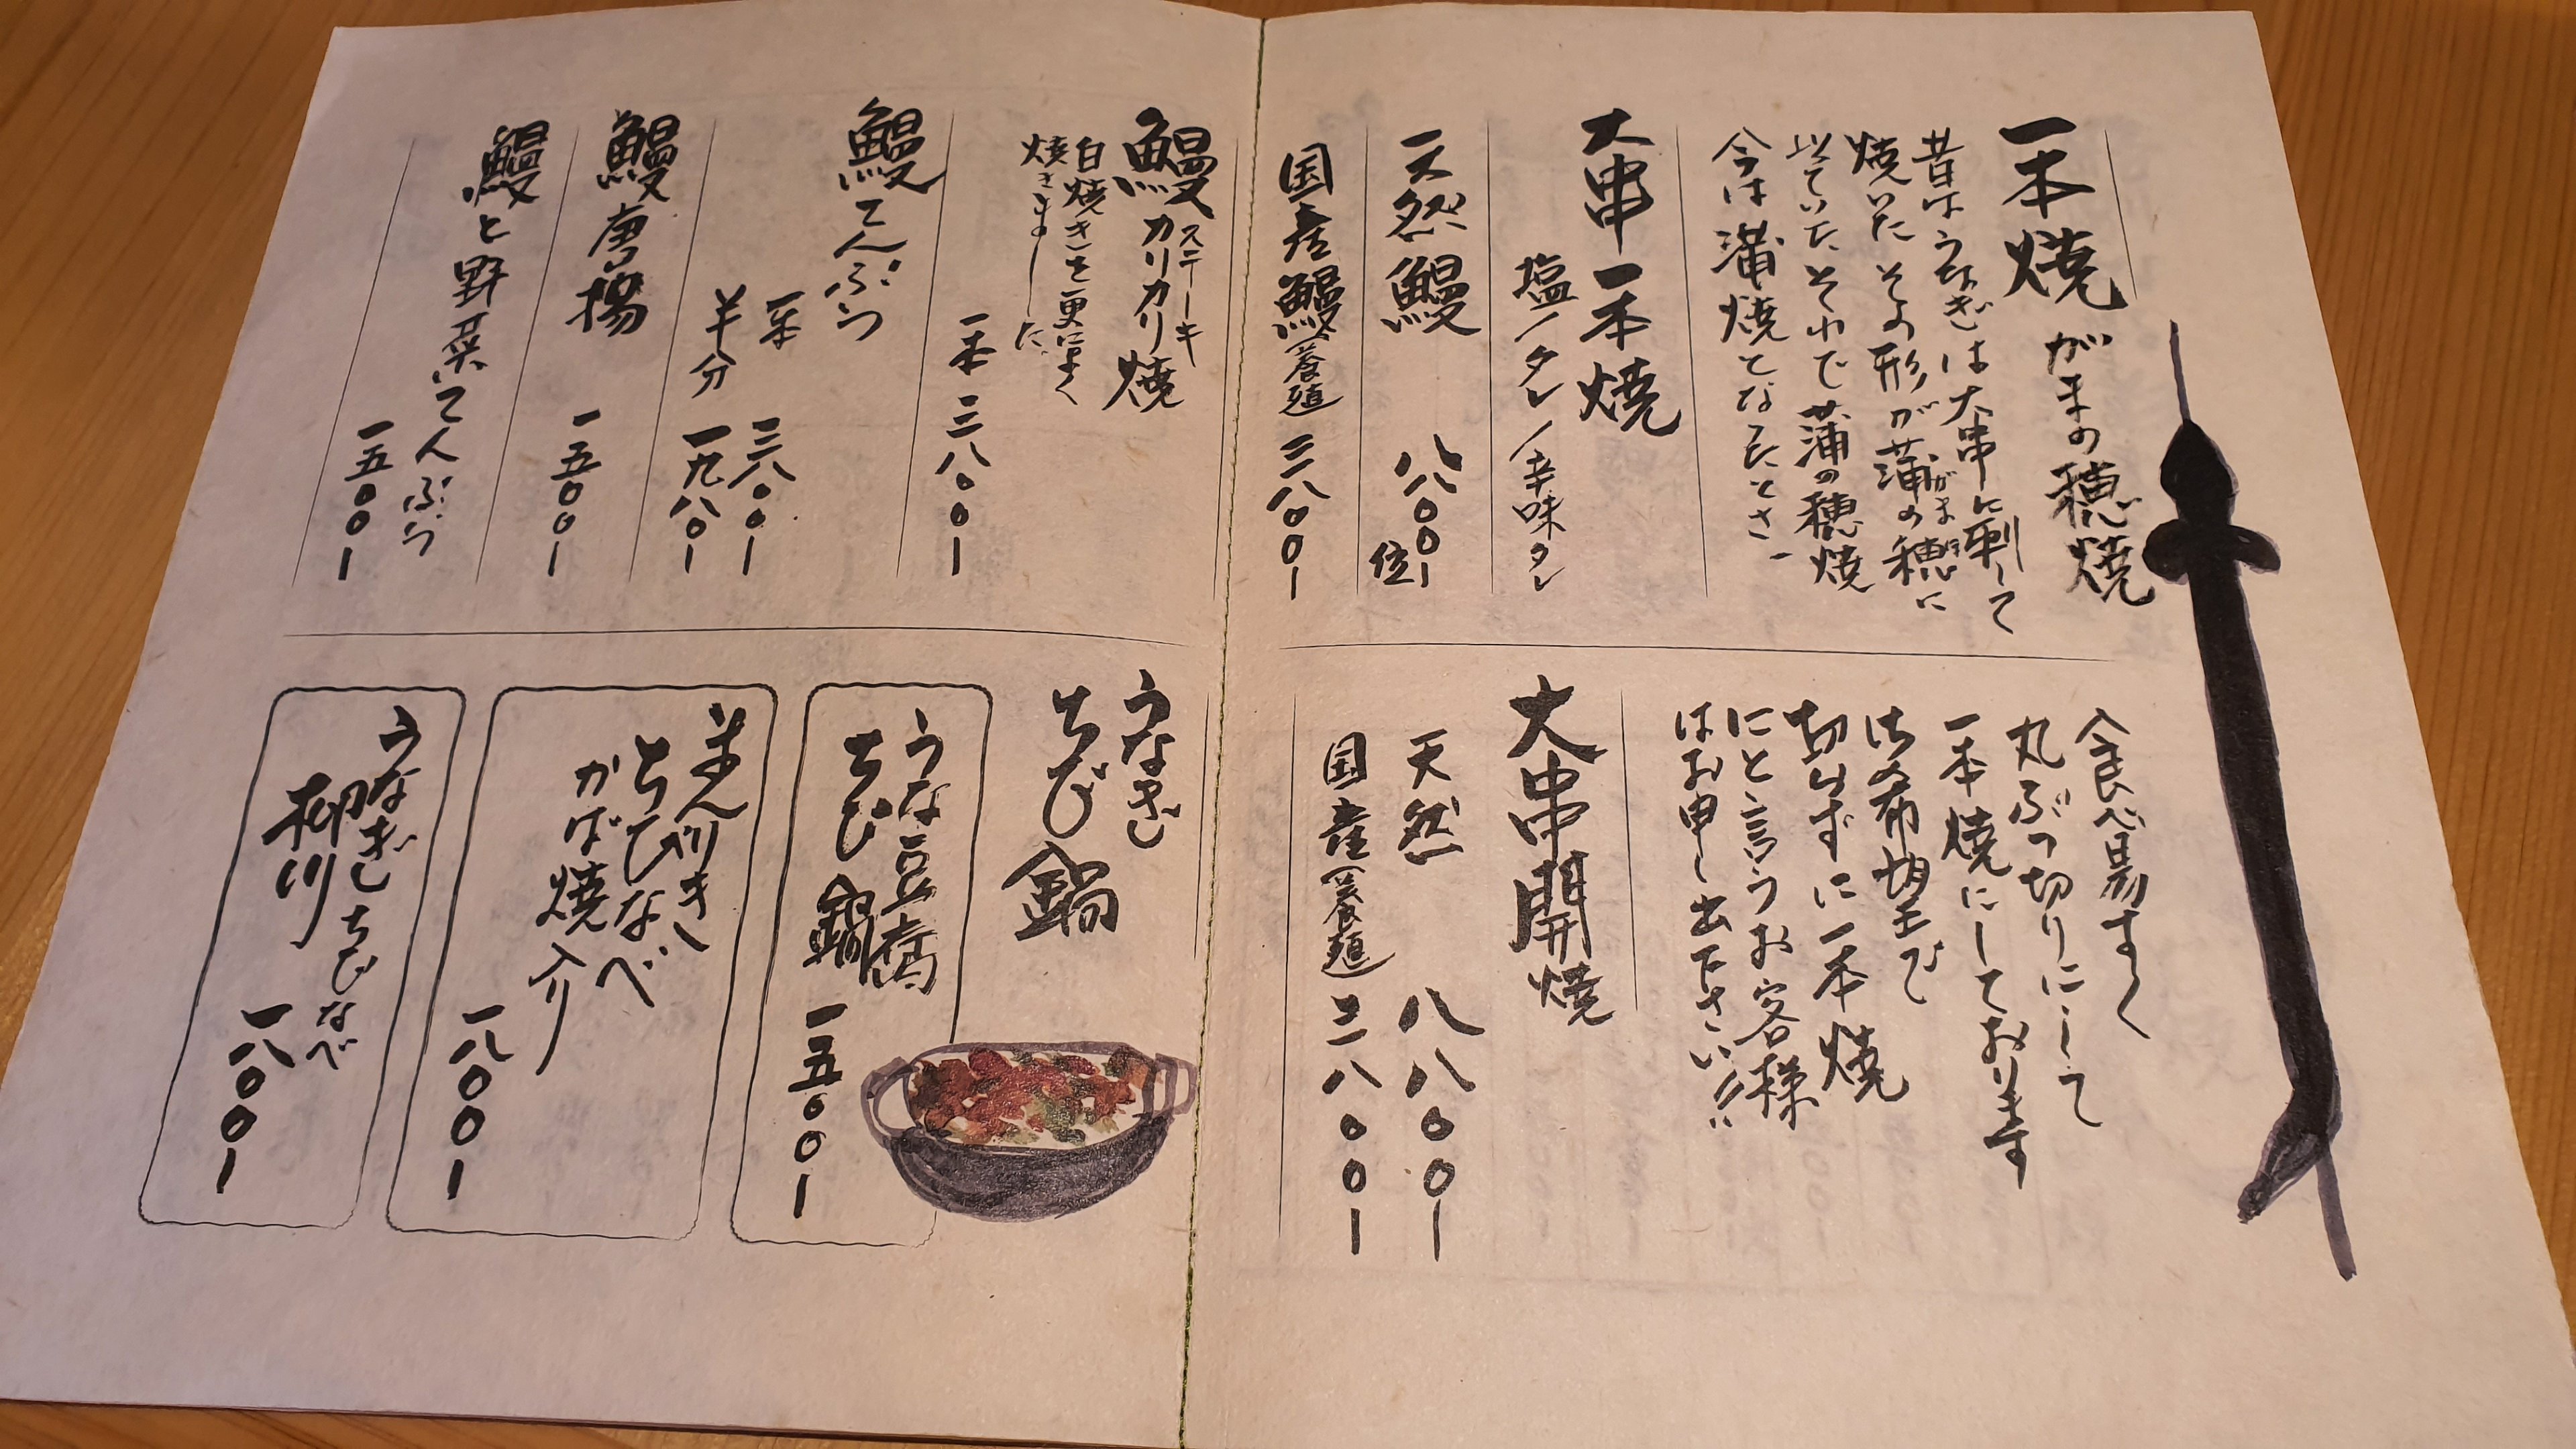 一本焼
がまの穂焼
昔はうなぎは大串に刺して
焼いたその形が蒲の穂に
がま ほ
似ていたそれで蒲の穂焼
今は蒲焼となったとさ
大串一本焼
塩/タレ/辛味タレ
天然鰻 八八〇〇ー位
国産鰻(養殖) 三八〇〇ー
食べ易すく
丸ぶつ切りにして
一本焼にしております
御希望で
切らずに一本焼
にと言うお客様
はお申し出下さい!!
大串開焼
天然 八八〇〇ー
国産(養殖) 三八〇〇ー
鰻カリカリ焼
ステーキ
白焼きを更によく
焼きました
一本 三八〇〇ー
鰻てんぷら
一本 三八〇〇ー
半分 一九八〇ー
鰻唐揚
一五〇〇ー
鰻と野菜てんぷら
一五〇〇ー
うなぎ
ちび鍋
うな豆腐
ちび鍋
一五〇〇ー
半んぺい
ちびなべ
かば焼入り
一八〇〇ー
うなぎちびなべ
柳川
一八〇〇ー